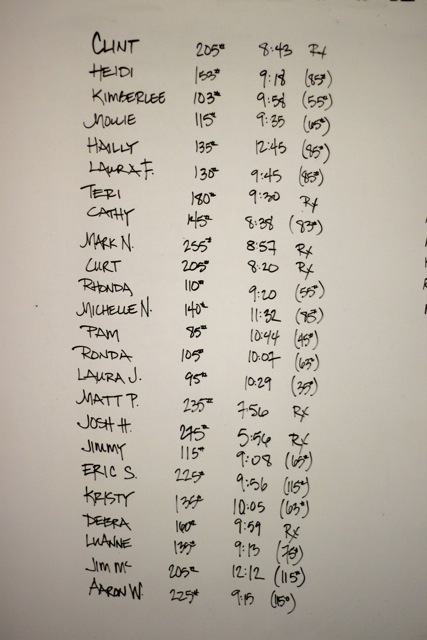 CLINT 205# 8:43 Rx
HEIDI 153# 9:18 (85#)
KIMBERLEE 103# 9:58 (55#)
MOLLIE 115# 9:35 (65#)
HAILLY 135# 12:45 (85#)
LAURA F. 130# 9:45 (85#)
TERI 180# 9:30 Rx
CATHY 145# 8:38 (83#)
MARK N. 255# 8:57 Rx
CURT 205# 8:20 Rx
RHONDA 110# 9:20 (55#)
MICHELLE N. 140# 11:32 (85#)
PAM 85# 10:44 (45#)
RONDA 105# 10:07 (63#)
LAURA J. 95# 10:29 (35#)
MATT P. 235# 7:56 Rx
JOSH H. 275# 5:56 Rx
JIMMY 115# 9:08 (65#)
ERIC S. 225# 9:56 (115#)
KRISTY 135# 10:05 (63#)
DEBRA 160# 9:59 Rx
LUANNE 135# 9:13 (75#)
JIM Mc 205# 12:12 (115#)
AARON W. 225# 9:15 (115#)